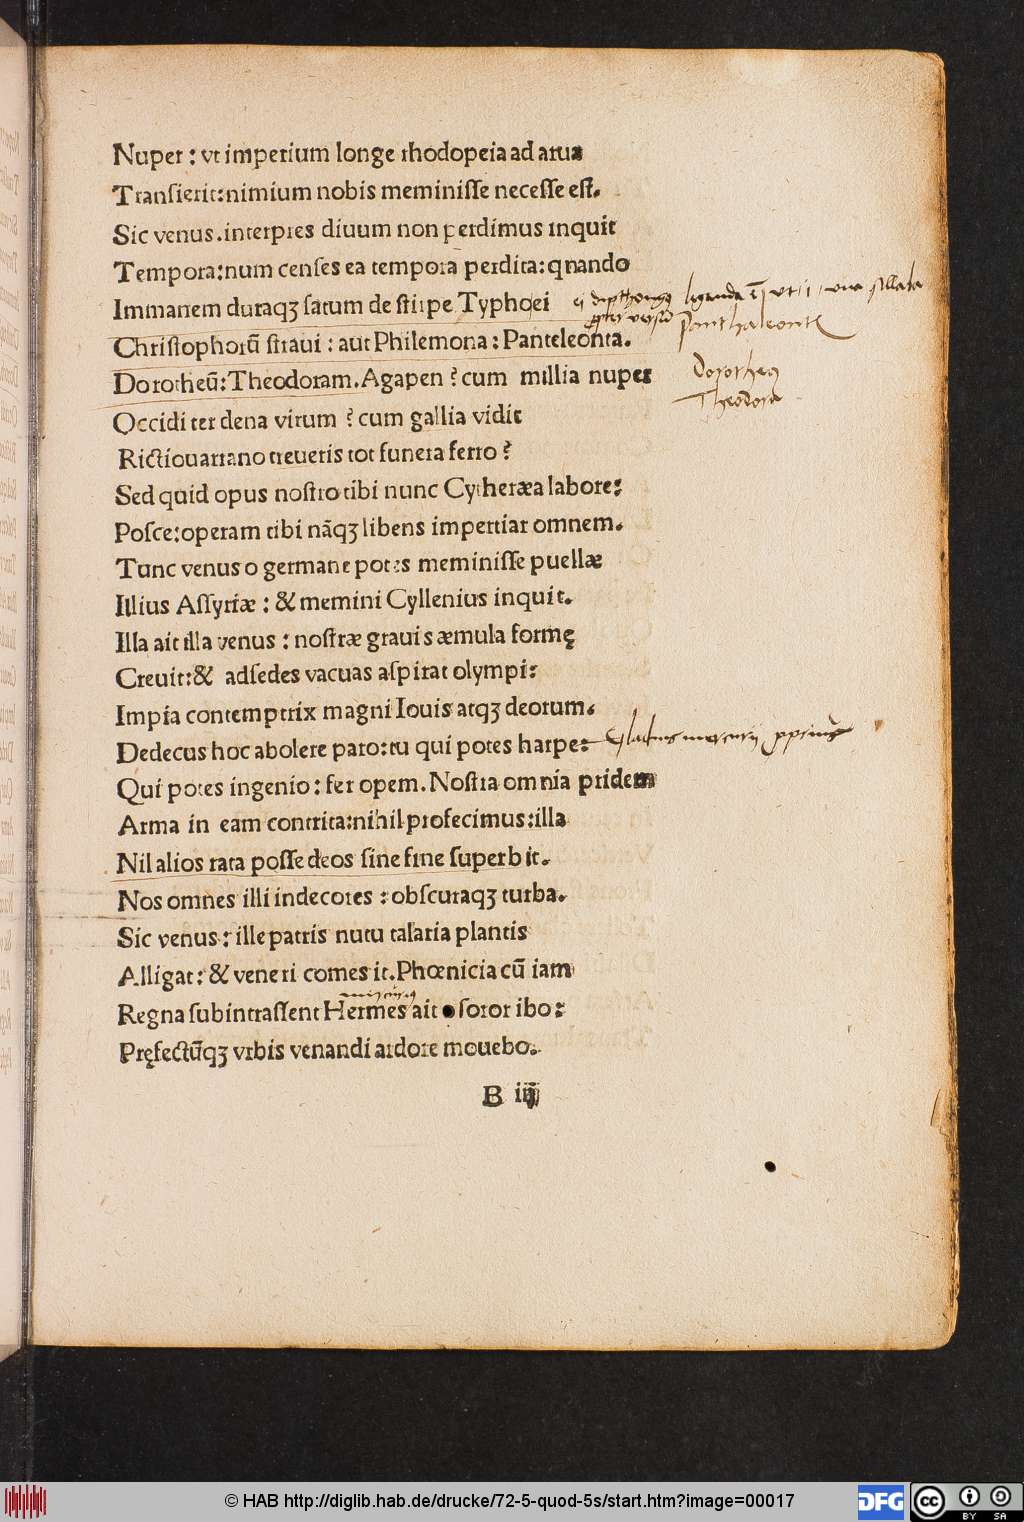 Nuper : vt imperium longe rhodopeia ad arua
Transierit:nimium nobis meminisse necesse est.
Sic venus.interpres diuum non perdimus inquit
Tempora:num censes ea tempora perdita:qnando
Immanem duraqꝫ satum de stirpe Typhoei
ei dipthongus legenda
propter versum
Panthaleonte
Christophorū straui : aut Philemona : Panteleonta.
Dorotheū: Theodoram. Agapen ? cum millia nuper
Dorothea
Theodora
Occidi ter dena virum ? cum gallia vidit
Rictiouariano treueris tot funera ferro ?
Sed quid opus nostro tibi nunc Cytheræa labore:
Posce:operam tibi nāqꝫ libens impertiar omnem.
Tunc venus o germane potes meminisse puellæ
Illius Assyriæ : & memini Cyllenius inquit.
Illa ait illa venus : nostræ grauis æmula formę
Creuit:& adsedes vacuas aspirat olympi:
Impia contemptrix magni Iouis atqꝫ deorum.
Dedecus hoc abolere paro:tu qui potes harpe:
Gladius mercurij
Qui potes ingenio : fer opem. Nostra omnia pridem
Arma in eam contrita:nihil profecimus:illa
Nil alios rata posse deos sine fine superbit.
Nos omnes illi indecores : obscuraqꝫ turba.
Sic venus : ille patris nutu talaria plantis
Alligat : & veneri comes it. Phœnicia cū iam
mercurius
Regna subintrassent Hermes ait soror ibo:
Pręfectūqꝫ vrbis venandi ardore mouebo.
B iij
© HAB http://diglib.hab.de/drucke/72-5-quod-5s/start.htm?image=00017
DFG
cc
BY SA